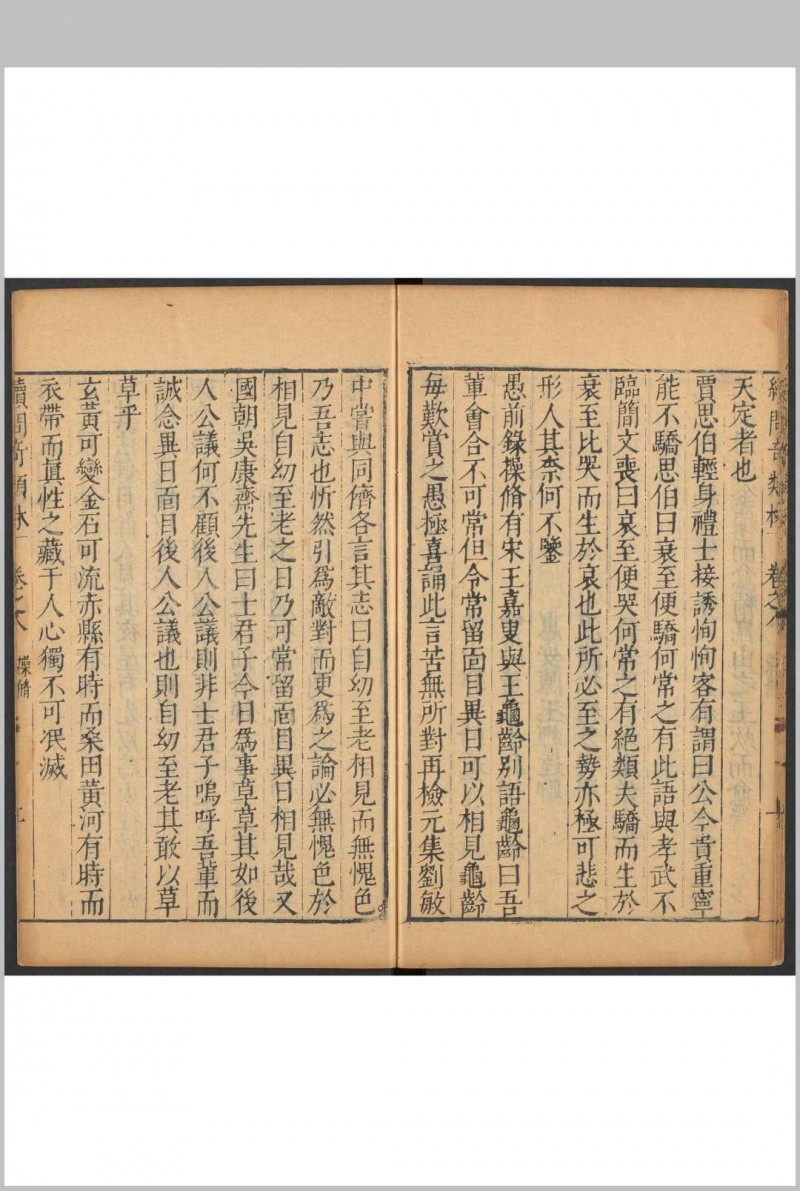 天定者也
賈思伯輕身禮士接誘恂恂客有謂曰公今貴重寧
能不驕思伯曰衰至便驕何常之有此語與孝武不
臨簡文喪曰哀至便哭何常之有絕類夫驕而生於
衰至比哭而生於哀也此所必至之勢亦極可悲之
形人其柰何不鑒
愚前錄操脩有宋王嘉叟與王龜齡別語龜齡曰吾
軰會合不可常但令常留面目異日可以相見龜齡
每歎賞之愚極喜誦此言苦無所對再檢元集劉敏
中嘗與同儕各言其志曰自幼至老相見而無愧色
乃吾志也忻然引爲敵對而更爲之論必無愧色於
相見自幼至老之日乃可常留面目異日相見哉又
國朝吳康齋先生曰士君子今日爲事草草其如後
人公議何不顧後人公議則非士君子嗚呼吾軰而
誠念異日面目後人公議也則自幼至老其敢以草
草乎
玄黃可變金石可流赤縣有時而桑田黃河有時而
衣帶而眞性之藏于人心獨不可泯滅
卷之八 操脩